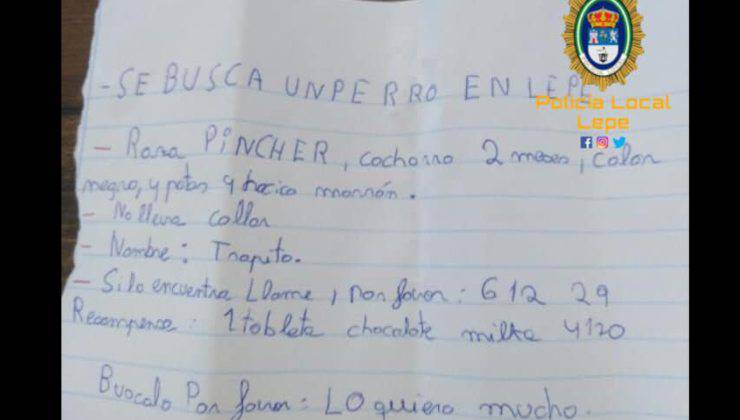 - SE BUSCA UN PERRO EN LEPE
Policía Local
Lepe
- Raza PiNCHER, cachorro 2 meses, color
negro, y patas y hocico marrón.
- No lleva collar
- Nombre: Trapito.
- Si lo encuentra LLame, por favor: 6 12 29
Recompensa: 1 tableta chocolate milka 4120
Buscalo Por favor: LO quiero mucho.